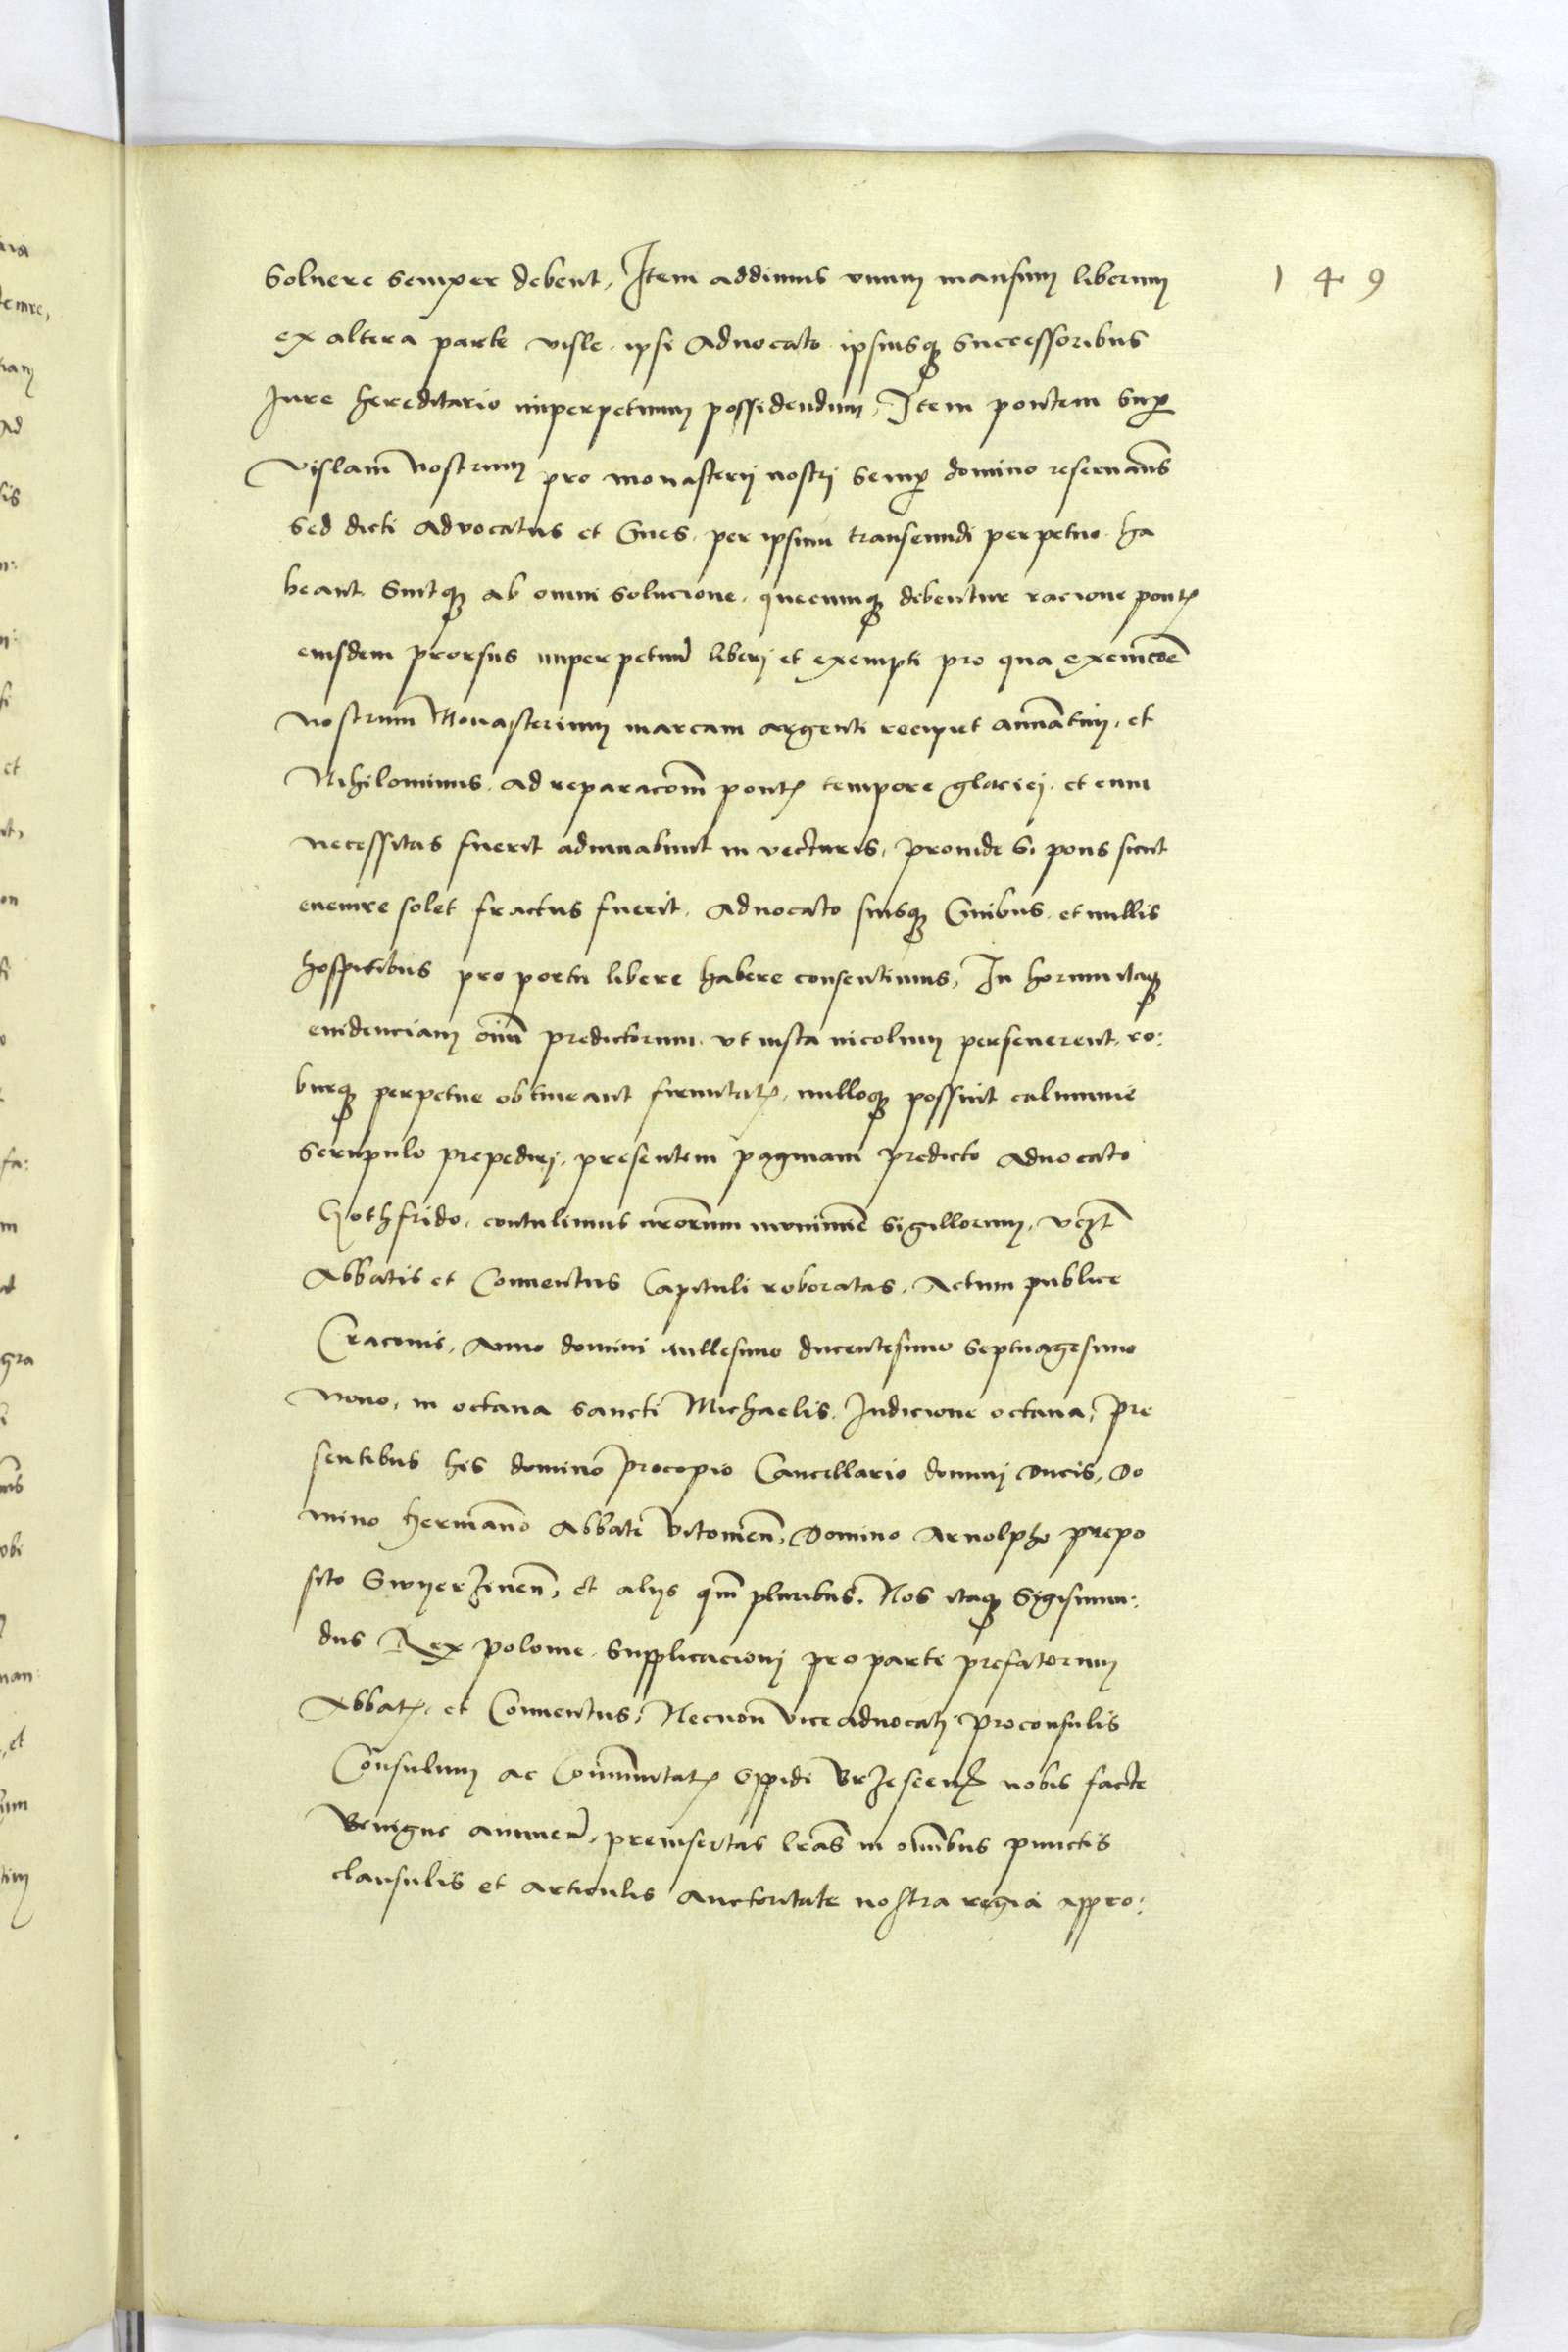 149
Soluere semper debent, Item addimus vnum mansum liberum
ex altera parte visle ipsi Aduocato ipsiusq successoribus
Jure hereditario imperpetuum possidendum, Item pontem sup
vislam nostrum pro monasterij nostri semp domino reseruams
sed dicti Advocatus et Ciues per ipsum transeundi perpetuo ha
beant. Sintq ab omni solucione, quecumq debentur racione pont
eiusdem prorsus imperpetuu liberi et exempti pro qua exempcoe
nostrum Monasterium marcam argenti recipiet annatim, et
Nihilominus ad reparacom pont tempore glaciei et cum
necessitas fuerit adiuuabunt in vecturis, prouide si pons sicut
euenire solet fractus fuerit, Aduocato suisq Ciuibus et nullis
hospitibus pro portu libere habere consentimus, In horum itaq
euidenciam oim predictorum vt iusta inicolum perseuerent, ro:
burq perpetue obtineant firmitat, nulloq possint calumnie
scrupulo prepediri, presentem paginam predicto Aduocato
Gothfrido, contulimus nrorum munimine sigillorum, vczt
Abbatis et Conuentus Capituli roboratas, Actum publice
Cracouie, Anno domini millesimo ducentesimo septuagesimo
nono, in octaua sancti Michaelis, Indicione octaua, pre
sentibus his domino procopio Cancellario domini ducis, do
mino hermano Abbate vitowien, Domino Arnolpho prepo
sito Swyerzinen, et alijs qm pluribus. Nos itaq Sigismun:
dus Rex polonie supplicacioni pro parte prefatorum
Abbat, et Conuentus, Necnon vice aduocati proconsulis
Consulum ac Communitat oppidi Brzescen nobis facte
Benigne annuen, preinsertas lras in omnibus punctis
clausulis et articulis auctoritate nostra regia appro: